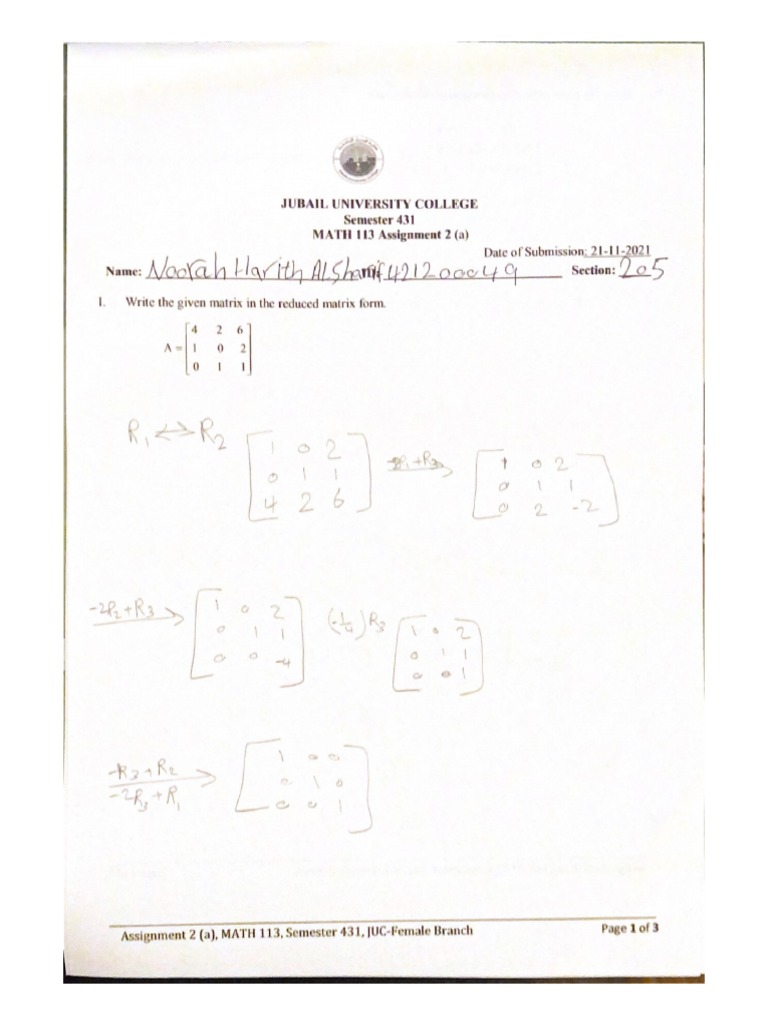 JUBAIL UNIVERSITY COLLEGE
Semester 431
MATH 113 Assignment 2 (a)
Date of Submission: 21-11-2021
Name: Noorah Harith AlShamr 421200049 Section: 205
1. Write the given matrix in the reduced matrix form.
4 2 6
A = 1 0 2
0 1 1
R1 ⇔ R2
1 0 2
0 1 1
4 2 6
R1+R3
1 0 2
0 1 1
0 2 -2
-2R2+R3
1 0 2
0 1 1
0 0 -4
(-1/4)R3
1 0 2
0 1 1
0 0 1
-R3+R2
-2R3+R1
1 0 0
0 1 0
0 0 1
Assignment 2 (a), MATH 113, Semester 431, JUC-Female Branch Page 1 of 3